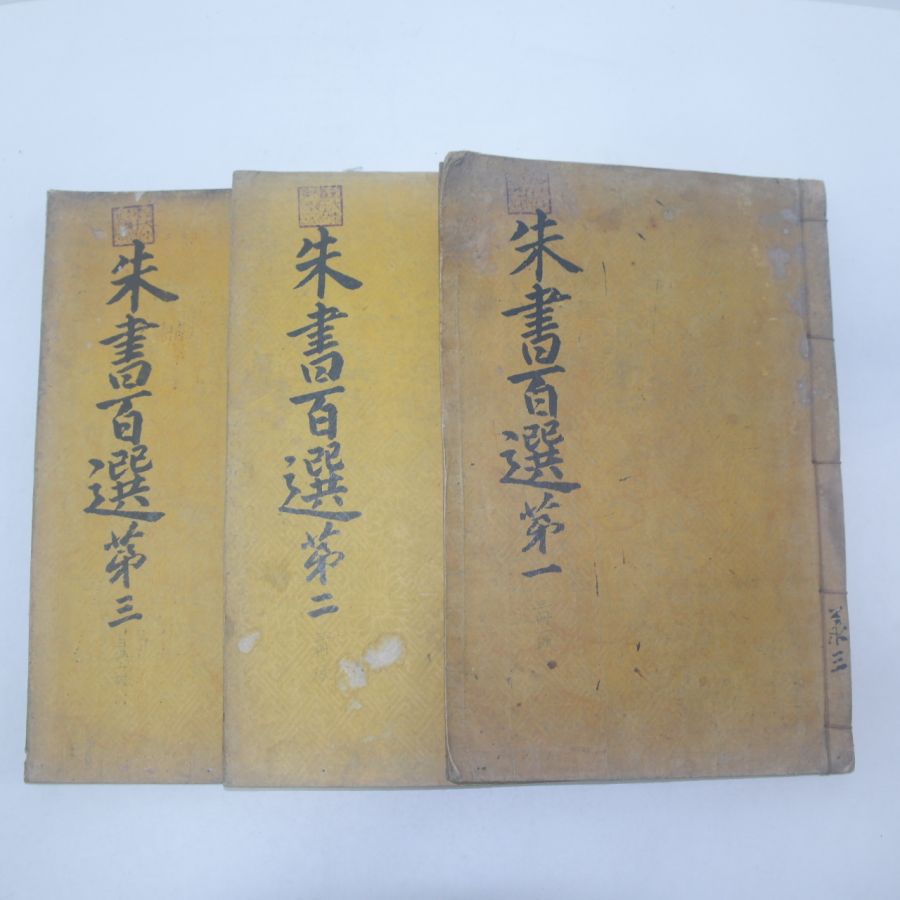 朱書百選第一
朱書百選第二
朱書百選第三